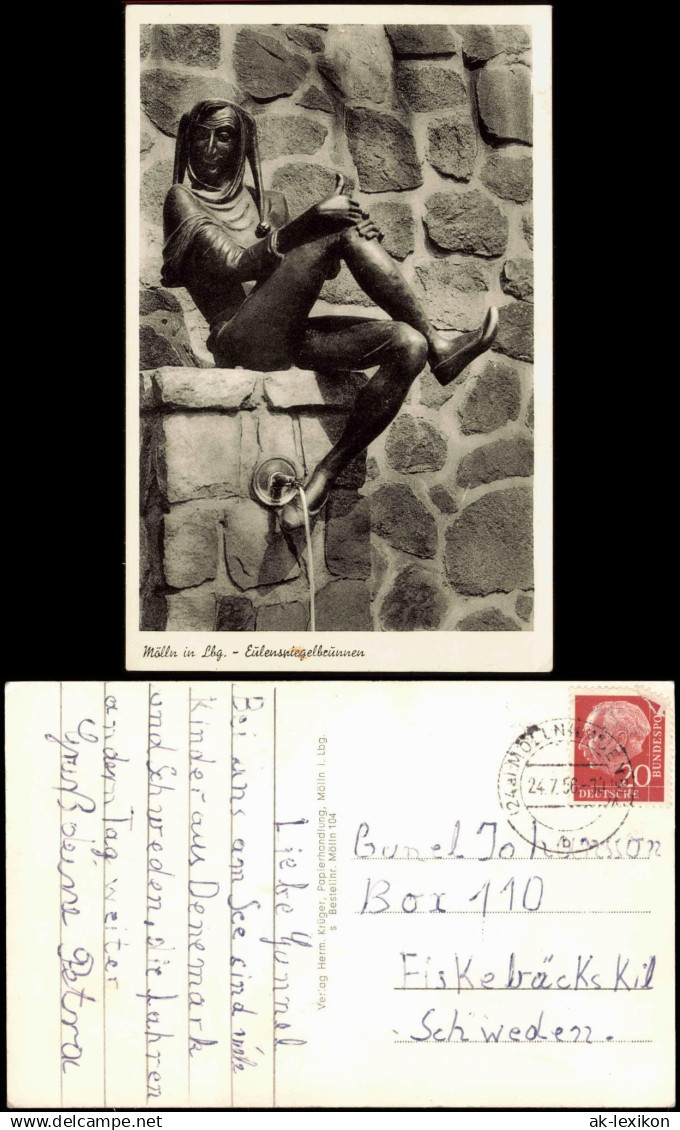 Mölln in Lbg. - Eulenspiegelbrunnen
Liebe Gunnel
Bei uns am See sind viele
Kinder aus Denemark
und Schweden, die fahren
andern Tag weiter
Gruß deine Petra
Verlag Herm. Krüger, Papierhandlung, Mölln i. Lbg.
s Bestellnr. Mölln 104
(24a) MÖLLN
24.7.56
b
20
DEUTSCHE
BUNDESPOST
Gunel Johansson
Box 110
Fiskebäckskil
Schweden.
ak-lexikon